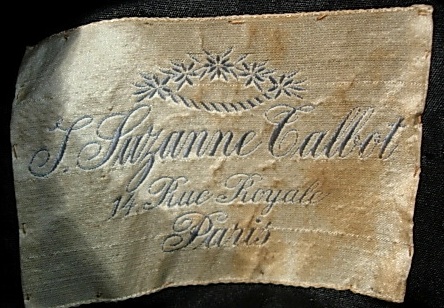 J. Suzanne Talbot
14, Rue Royale
Paris